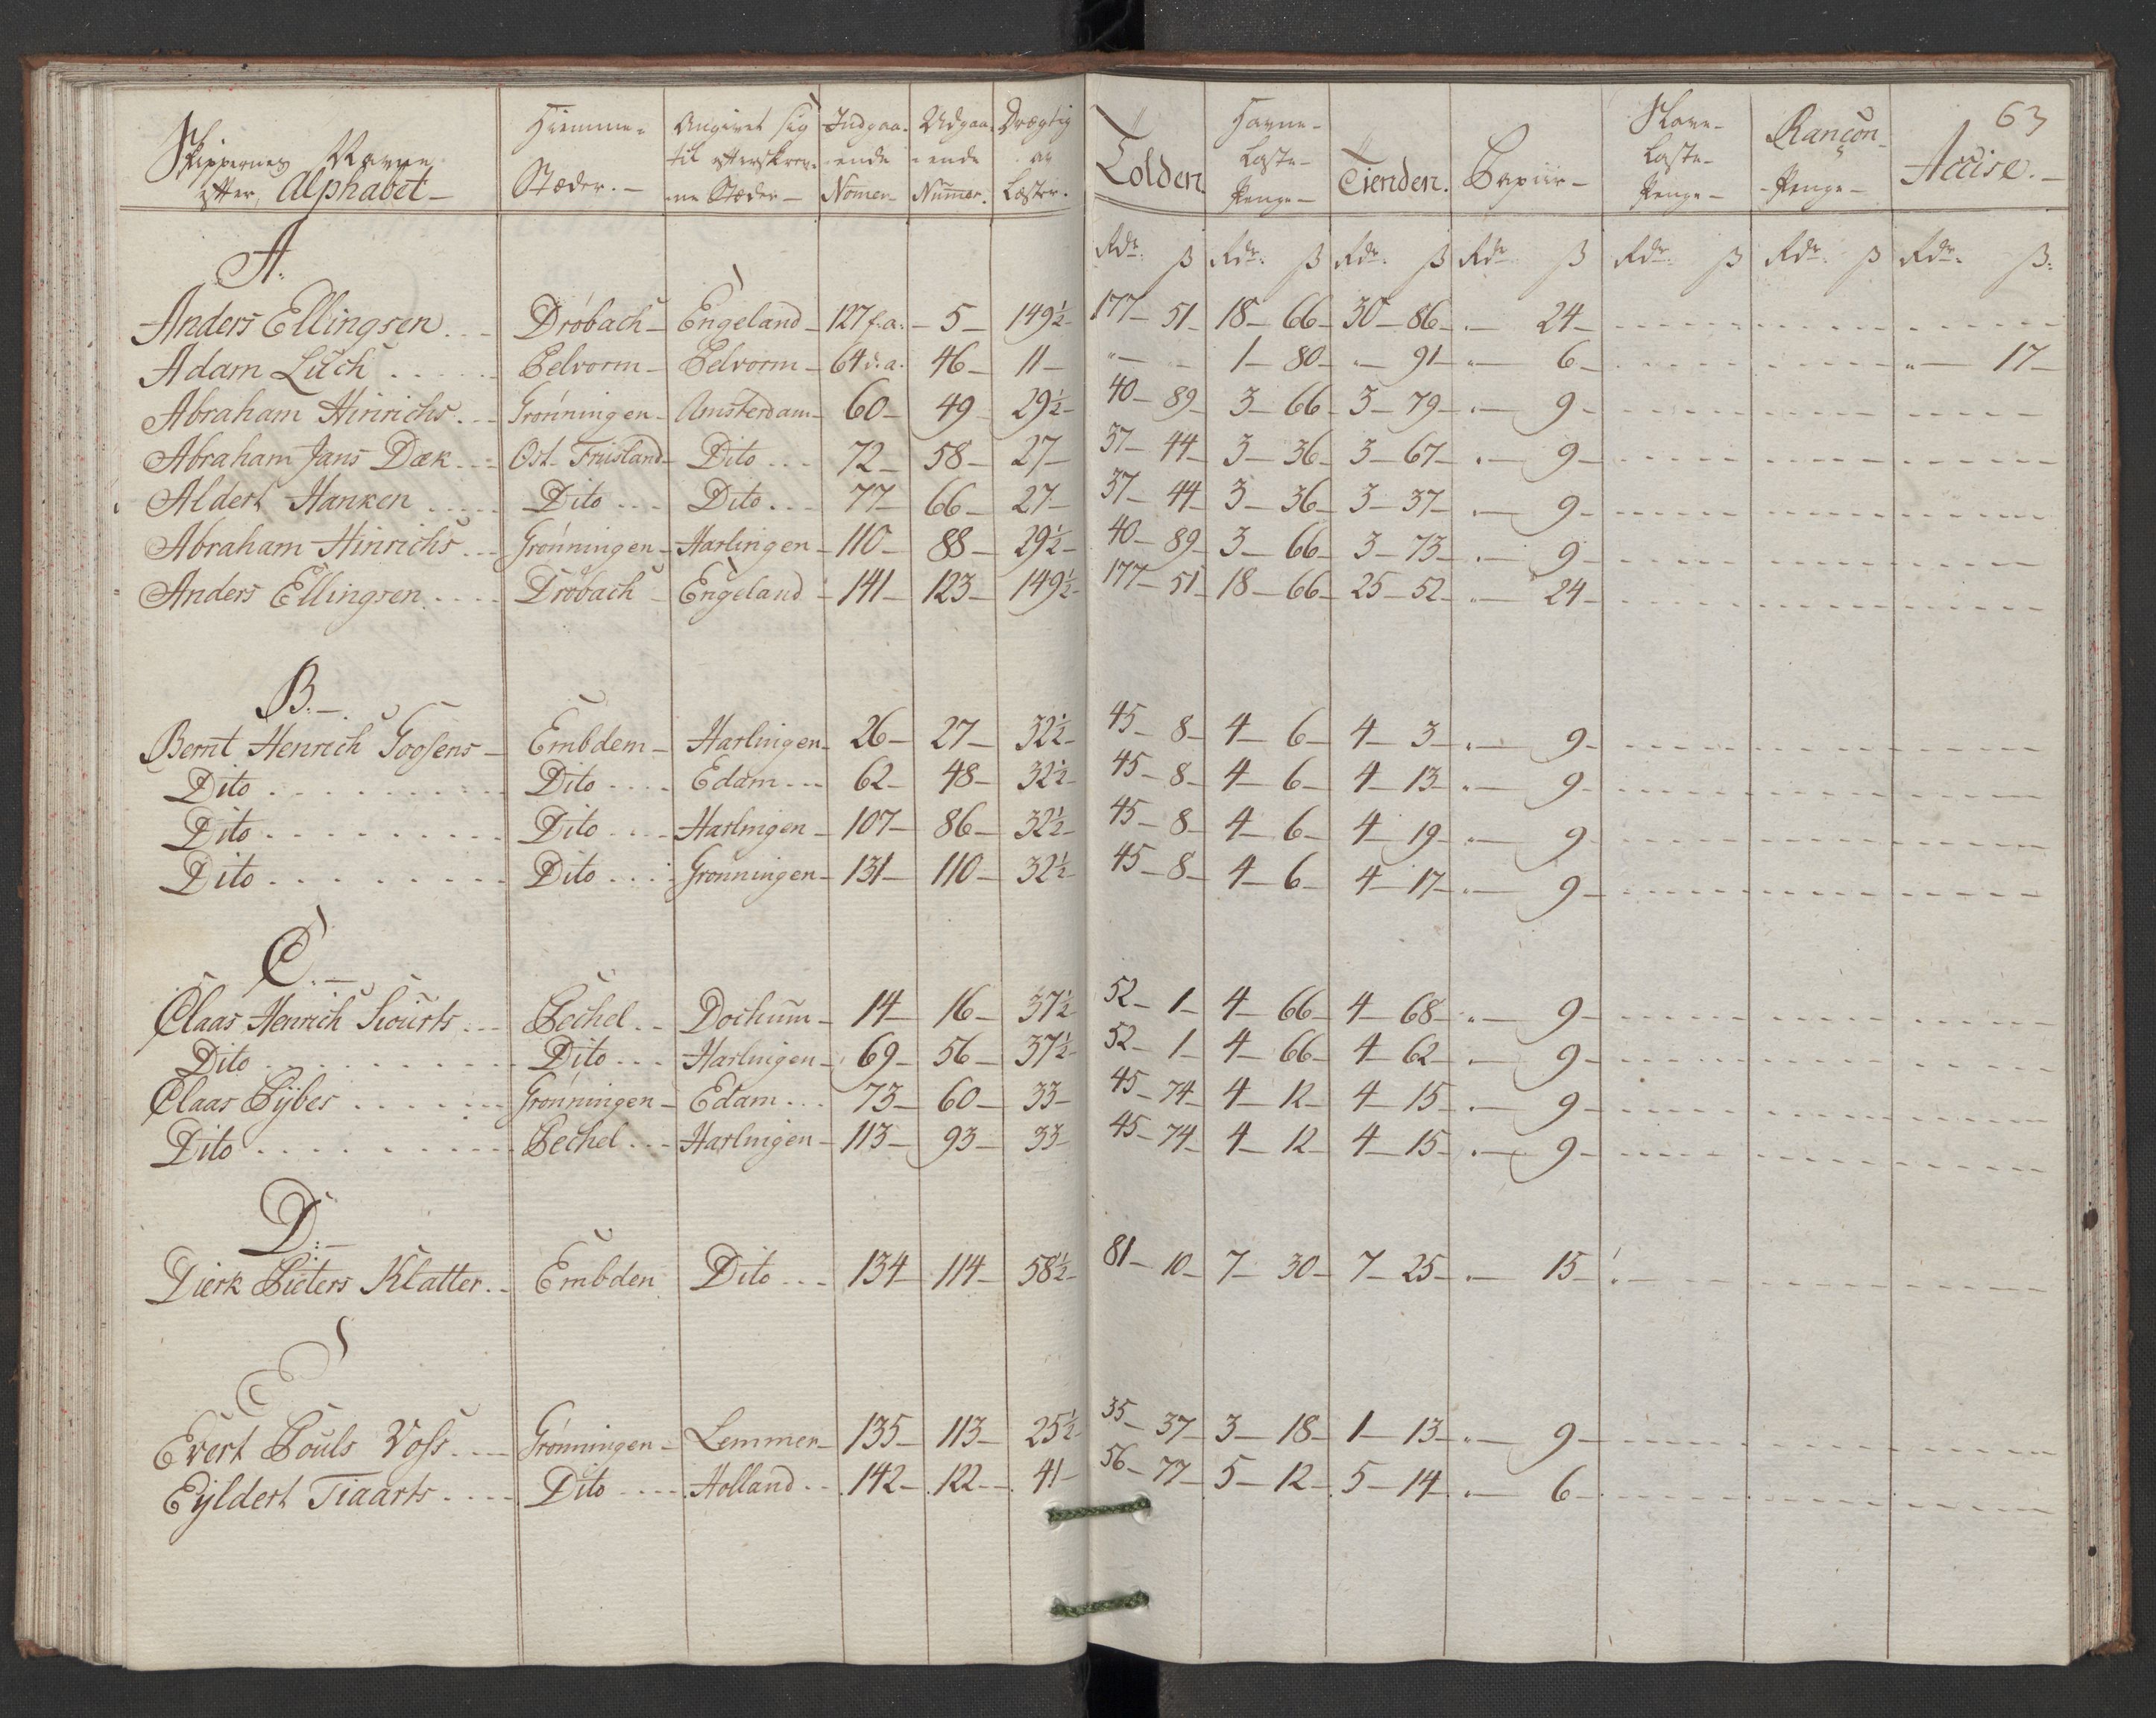 63
Skippernes Navne efter Alphabet — | Hiemme-Stæder. — | Angivet sig til efterskrevne Stæder — | Indgaaende Nomer — | Udgaaende Nummer. | Drægtig av Læster. | Tolden. | Havne-Læste-Penge — | Tienden. | Papiir — | Læste-Penge — | Rançon-Penge — | Accise. —
Rdr. ß | Rdr. ß | Rdr. ß | Rdr. ß | Rdr. ß | Rdr. ß | Rdr. ß.
A.
Anders Ellingsen | Dröbach | Engeland | 127 f.a. | 5 | 149½ | 177 – 51 | 18 – 66 | 30 – 86 | " – 24
Adam Lüch | Pelvorm | Pelvorm | 64 f.a. | 46 | 11 | " – | 1 – 80 | " – 91 | " – 6 | " – 17
Abraham Hinrichs | Grönningen | Amsterdam | 60 | 49 | 29½ | 40 – 89 | 3 – 66 | 3 – 79 | " – 9
Abraham Jans Dæk | Ost-Friisland | Dito | 72 | 58 | 27 | 37 – 44 | 3 – 36 | 3 – 67 | " – 9
Aldert Hanken | Dito | Dito | 77 | 66 | 27 | 37 – 44 | 3 – 36 | 3 – 37 | " – 9
Abraham Hinrichs | Grönningen | Harlingen | 110 | 88 | 29½ | 40 – 89 | 3 – 66 | 3 – 73 | " – 9
Anders Ellingsen | Dröbach | Engeland | 141 | 123 | 149½ | 177 – 51 | 18 – 66 | 25 – 52 | " – 24
B. —
Bernt Henrich Goosens | Embdem | Harlingen | 26 | 27 | 32½ | 45 – 8 | 4 – 6 | 4 – 3 | " – 9
Dito | Dito | Edam | 62 | 48 | 32½ | 45 – 8 | 4 – 6 | 4 – 13 | " – 9
Dito | Dito | Harlingen | 107 | 86 | 32½ | 45 – 8 | 4 – 6 | 4 – 19 | " – 9
Dito | Dito | Grönningen | 131 | 110 | 32½ | 45 – 8 | 4 – 6 | 4 – 17 | " – 9
C. —
Claas Henrich Siourts | Pechel | Dochum | 14 | 16 | 37½ | 52 – 1 | 4 – 66 | 4 – 68 | " – 9
Dito | Dito | Harlingen | 69 | 56 | 37½ | 52 – 1 | 4 – 66 | 4 – 62 | " – 9
Claas Pijbes | Grönningen | Edam | 73 | 60 | 33 | 45 – 74 | 4 – 12 | 4 – 15 | " – 9
Dito | Pechel | Harlingen | 113 | 93 | 33 | 45 – 74 | 4 – 12 | 4 – 15 | " – 9
D: —
Dierk Pieters Klatter | Embden | Dito | 134 | 114 | 58½ | 81 – 10 | 7 – 30 | 7 – 25 | " – 15
E
Evert Pouls Voss | Grönningen | Lemmer | 135 | 113 | 25½ | 35 – 37 | 3 – 18 | 1 – 13 | " – 9
Eijldert Tiaarts | Dito | Holland | 142 | 122 | 41 | 56 – 77 | 5 – 12 | 5 – 14 | " – 6